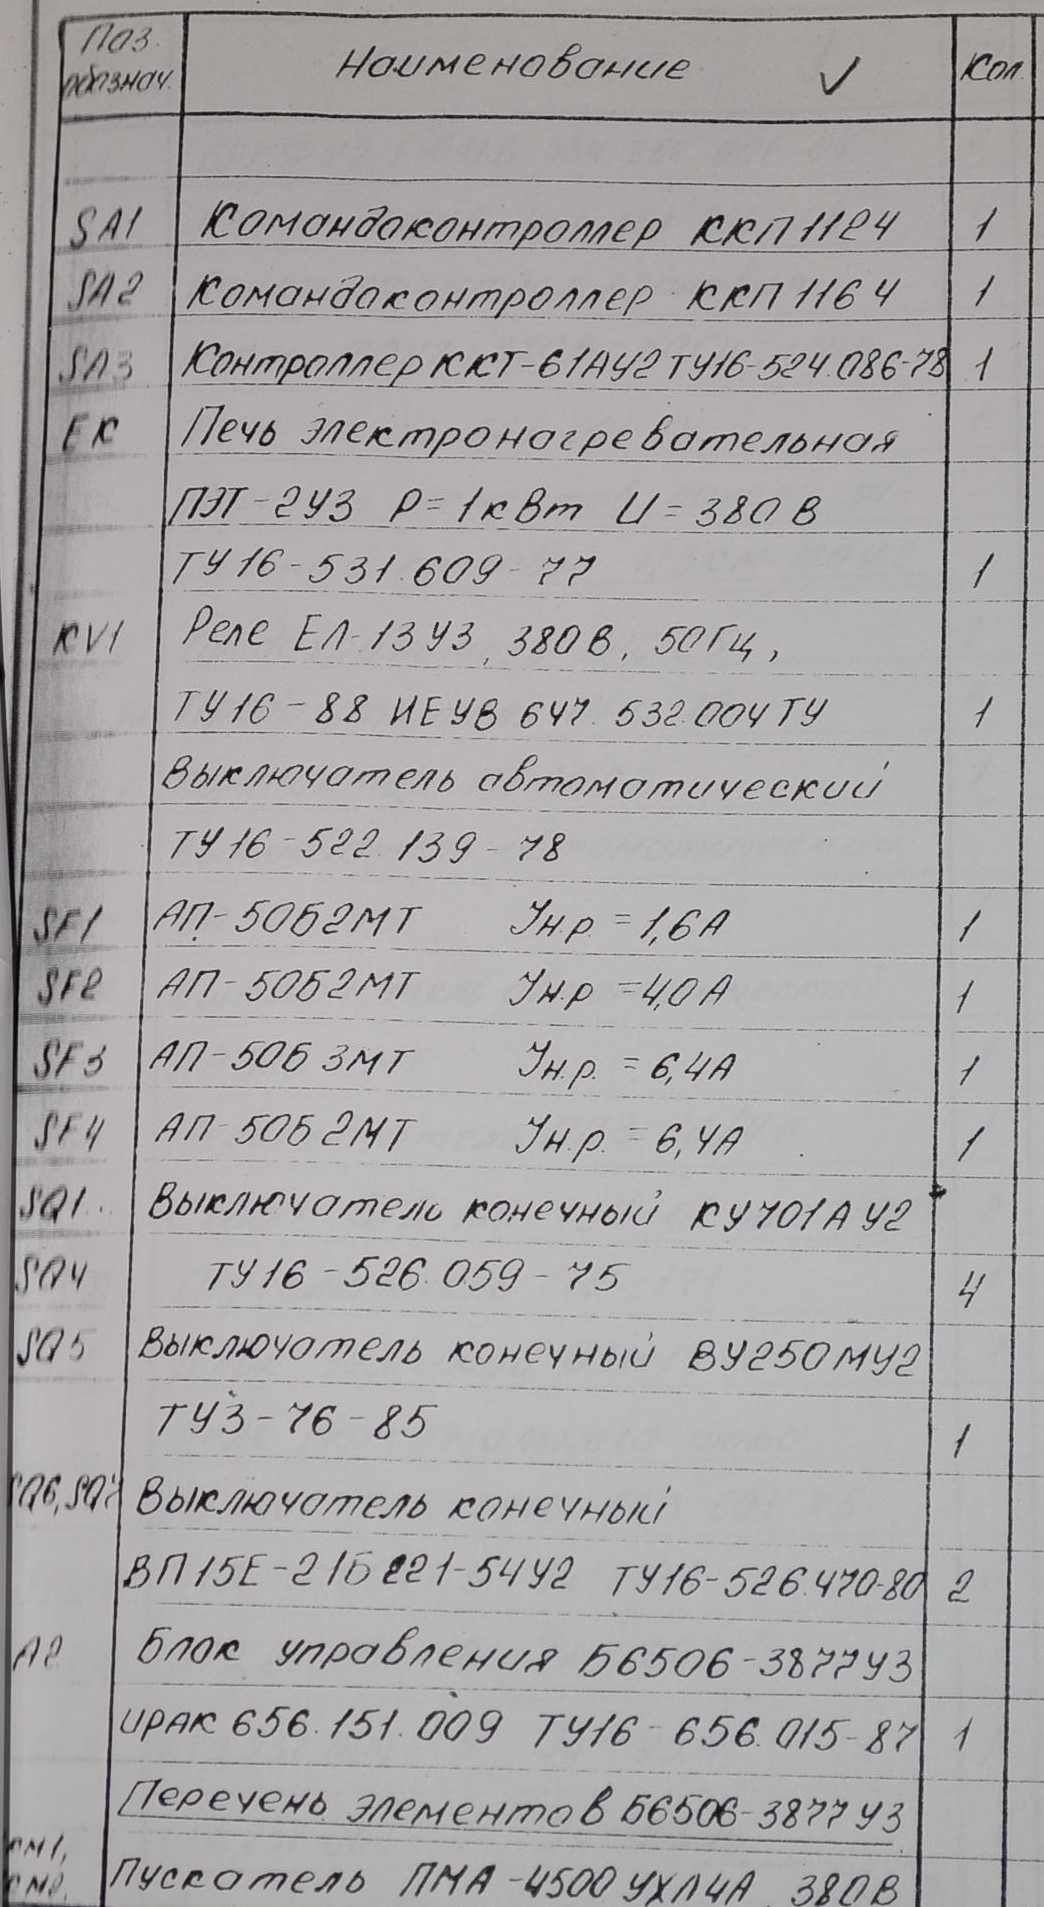 Поз. обознач. Наименование Кол.
SA1 Командоконтроллер ККП1124 1
SA2 Командоконтроллер ККП1164 1
SA3 Контроллер ККТ-61АУ2 ТУ16-524.086-78 1
ЕК Печь электронагревательная
ПЭТ-2У3 Р=1кВт U=380В
ТУ16-531.609-77 1
KV1 Реле ЕЛ-13У3, 380В, 50Гц,
ТУ16-88 ИЕУВ 647.532.004ТУ 1
Выключатель автоматический
ТУ16-522.139-78
SF1 АП-50Б2МТ Iн.р.=1,6А 1
SF2 АП-50Б2МТ Iн.р=4,0А 1
SF3 АП-50Б3МТ Iн.р.=6,4А 1
SF4 АП-50Б2МТ Iн.р.=6,4А 1
SQ1.. Выключатель конечный КУ701АУ2
SQ4 ТУ16-526.059-75 4
SQ5 Выключатель конечный ВУ250МУ2
ТУ3-76-85 1
SQ6, SQ7 Выключатель конечный
ВП15Е-21Б221-54У2 ТУ16-526.470-80 2
А2 Блок управления Б6506-3877У3
ИРАК 656.151.009 ТУ16-656.015-87 1
Перечень элементов Б6506-3877У3
КМ1,
КМ2, Пускатель ПМА-4500УХЛ4А, 380В